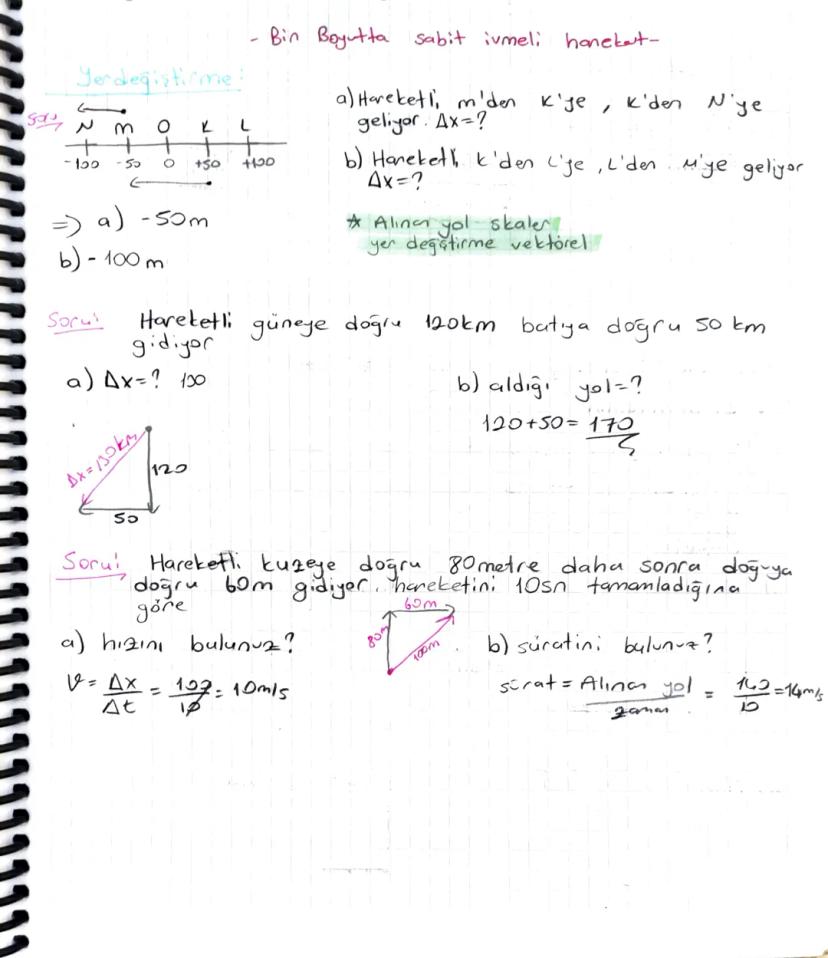 - Bir Boyutta sabit ivmeli hareket -
Yerdeğiştirme:
Soru
N M O K L
-100 -50 0 +50 +100
a) Hareketli, m'den K'ye, K'den N'ye
geliyor. Δx=?
b) Hareketli, K'den L'ye, L'den M'ye geliyor
Δx=?
=> a) -50m
b) -100 m
* Alınan yol skaler
yer değiştirme vektörel
Soru: Hareketli güneye doğru 120km batıya doğru 50 km
gidiyor
a) Δx=? 130
b) aldığı yol=?
120+50=170
Δx=130km
120
50
Soru: Hareketli kuzeye doğru 80metre daha sonra doğuya
doğru 60m gidiyor. hareketini 10sn tamamladığına
göre
60m
80m
100m
a) hızını bulunuz?
b) süratini bulunuz?
V = Δx/Δt = 100/10 = 10m/s
sürat = Alınan yol/zaman = 140/10 = 14m/s